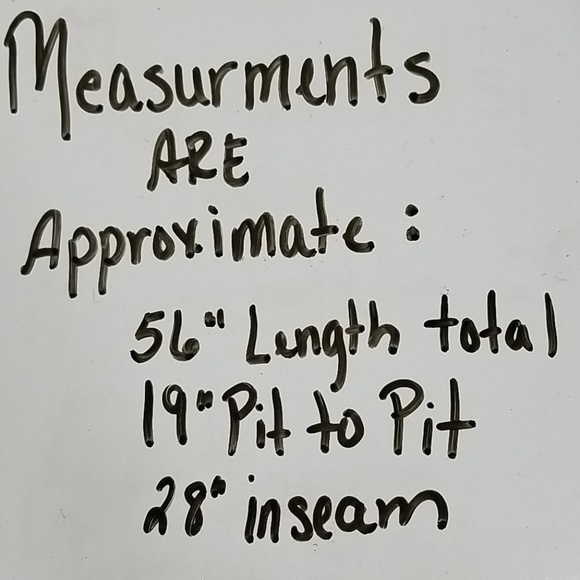 Measurments
ARE
Approximate :
56" Length total
19" Pit to Pit
28" inseam